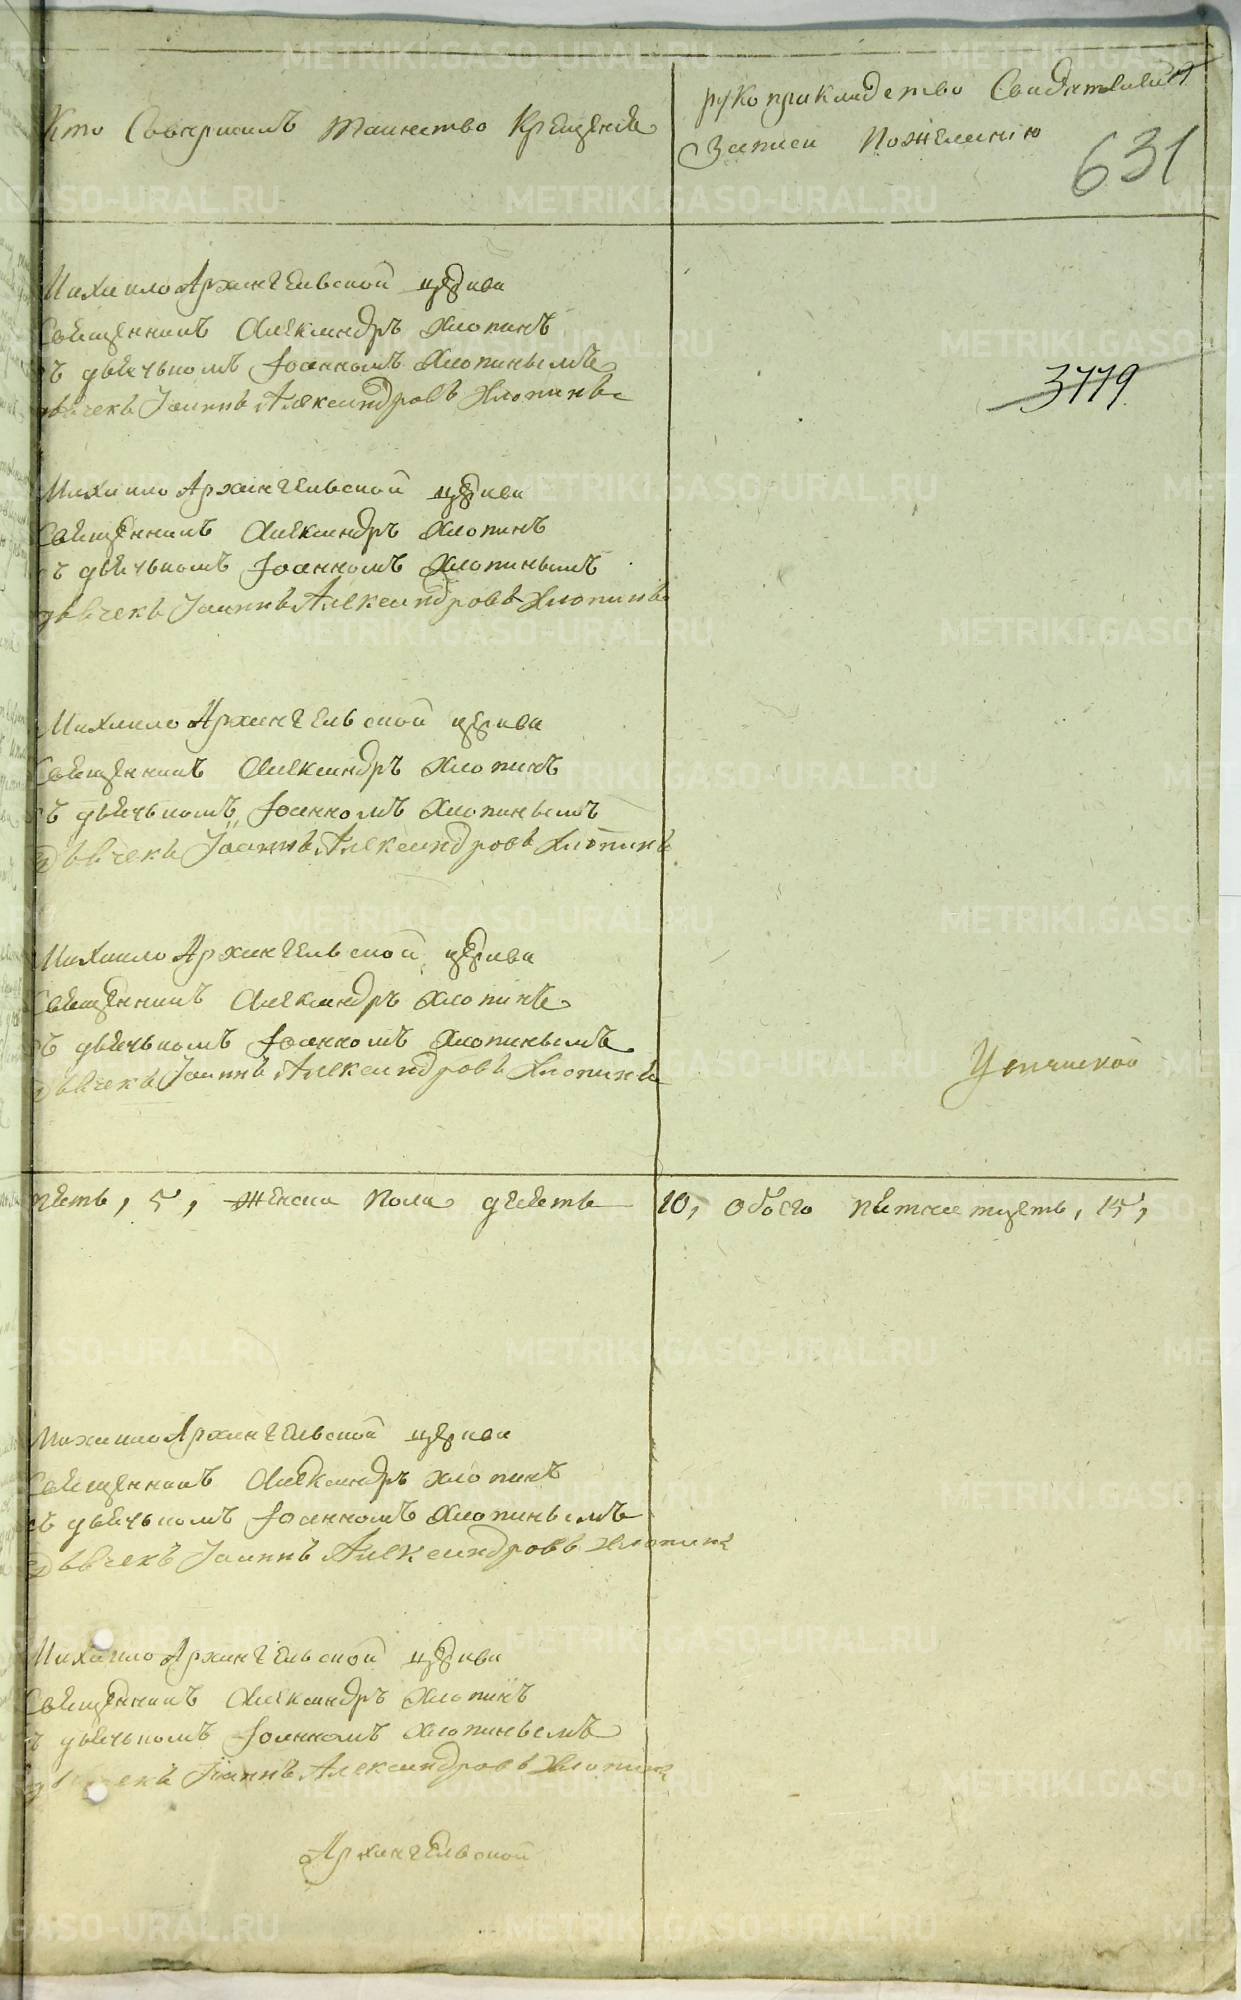 Кто Совершилъ таинство Крещенiе
рукоприкладство Свидѣтелей
Записи Пожеланiю
631
Михаило Архангельской церкви
Священникъ Александръ Хлопинъ
съ дьячькомъ Iоанномъ Хлопинымъ
дьячекъ Iоаннъ Александровъ Хлопинъ
3779
Михаило Архангельской церкви
Священникъ Александръ Хлопинъ
съ дьячькомъ Iоанномъ Хлопинымъ
дьячекъ Iоаннъ Александровъ Хлопинъ
Михаило Архангельской церкви
Священникъ Александръ Хлопинъ
съ дьячькомъ Iоанномъ Хлопинымъ
дьячекъ Iоаннъ Александровъ Хлопинъ
Михаило Архангельской церкви
Священникъ Александръ Хлопинъ
съ дьячькомъ Iоанномъ Хлопинымъ
дьячекъ Iоаннъ Александровъ Хлопинъ
пять, 5, женска пола десеть 10, обоего пятнатцеть, 15,
Михаило Архангельской церкви
Священникъ Александръ Хлопинъ
съ дьячькомъ Iоанномъ Хлопинымъ
дьячекъ Iоаннъ Александровъ Хлопинъ
Михаило Архангельской церкви
Священникъ Александръ Хлопинъ
съ дьячькомъ Iоанномъ Хлопинымъ
дьячекъ Iоаннъ Александровъ Хлопинъ
Архангельской
METRIKI.GASO-URAL.RU